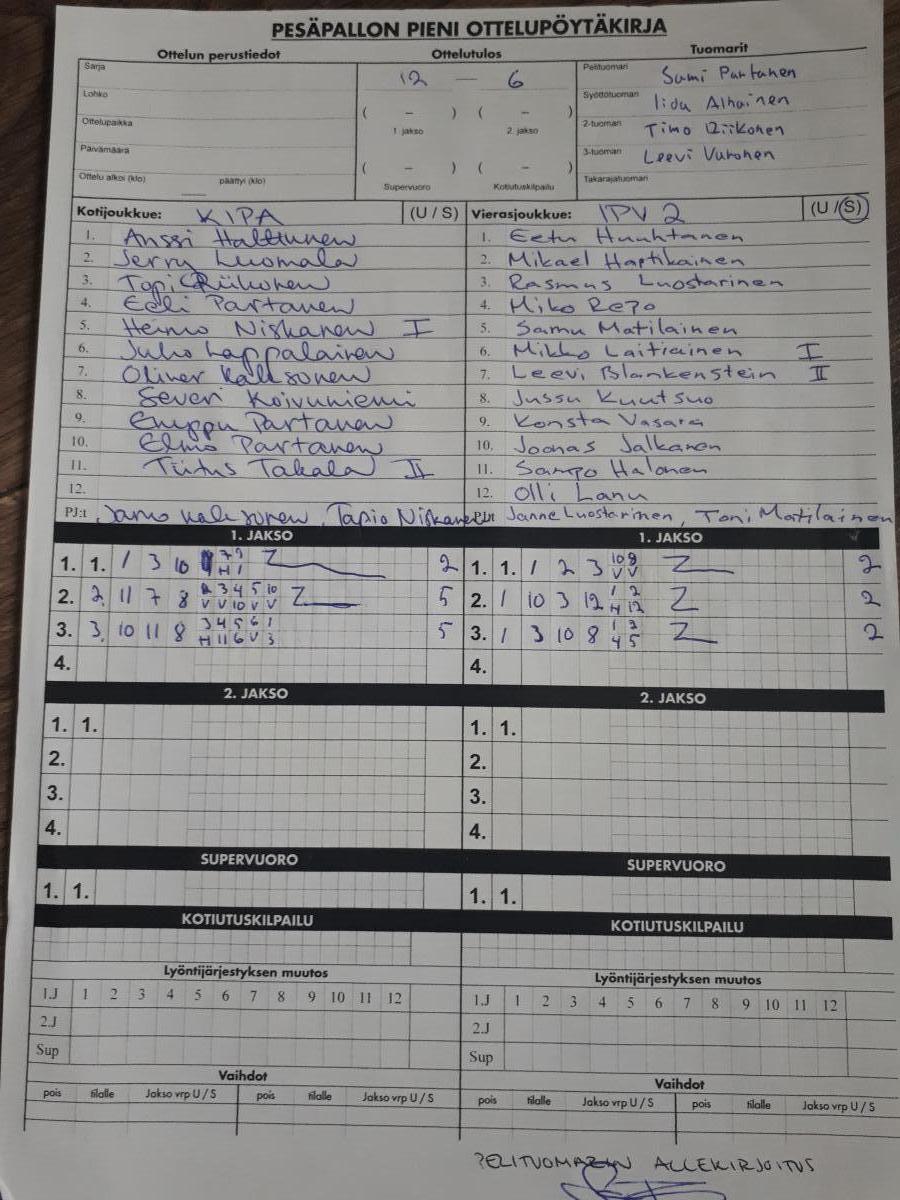 PESÄPALLON PIENI OTTELUPÖYTÄKIRJA
Ottelun perustiedot Ottelutulos Tuomarit
Sarja
Lohko
Ottelupaikka
Päivämäärä
Ottelu alkoi (klo) päättyi (klo)
12 — 6
( – ) ( – )
1. jakso 2. jakso
( – ) ( – )
Supervuoro Kotiutuskilpailu
Pelituomari Sami Partanen
Syöttötuomari Iida Alhainen
2-tuomari Timo Riikonen
3-tuomari Leevi Vuronen
Takarajatuomari
Kotijoukkue: KIPA (U / S) Vierasjoukkue: IPV 2 (U / S)
1. Anssi Halttunen 1. Eetu Huuhtanen
2. Jerry Luomala 2. Mikael Haptikainen
3. Topi Riikonen 3. Rasmus Luostarinen
4. Eeli Partanen 4. Miko Repo
5. Heimo Niskanen I 5. Samu Matilainen
6. Juho Lappalainen 6. Mikko Laitiainen I
7. Oliver Kaksonen 7. Leevi Blankenstein II
8. Severi Koivuniemi 8. Jussu Kuutsuo
9. Eemppu Partanen 9. Konsta Vasara
10. Elmo Partanen 10. Joonas Jalkanen
11. Tiitus Takala II 11. Sampo Halonen
12. 12. Olli Lanu
PJ:t Jarno Kaksonen, Tapio Niskanen PJ:t Janne Luostarinen, Toni Matilainen
1. JAKSO 1. JAKSO
1. 1. 1 3 10 7 9 Z 2 1. 1. 1 2 3 10 8 Z 2
H 1 V V
2. 2. 11 7 8 2 3 4 5 10 Z 5 2. 1 10 3 12 1 2 Z 2
V V 10 V V H 12
3. 3. 10 11 8 3 4 5 6 1 5 3. 1 3 10 8 1 3 Z 2
H 11 6 V 3 4 5
4. 4.
2. JAKSO 2. JAKSO
1. 1. 1. 1.
2. 2.
3. 3.
4. 4.
SUPERVUORO SUPERVUORO
1. 1. 1. 1.
KOTIUTUSKILPAILU KOTIUTUSKILPAILU
Lyöntijärjestyksen muutos Lyöntijärjestyksen muutos
1.J 1 2 3 4 5 6 7 8 9 10 11 12 1.J 1 2 3 4 5 6 7 8 9 10 11 12
2.J 2.J
Sup Sup
Vaihdot Vaihdot
pois tilalle Jakso vrp U / S pois tilalle Jakso vrp U / S pois tilalle Jakso vrp U / S pois tilalle Jakso vrp U / S
PELITUOMARIN ALLEKIRJOITUS